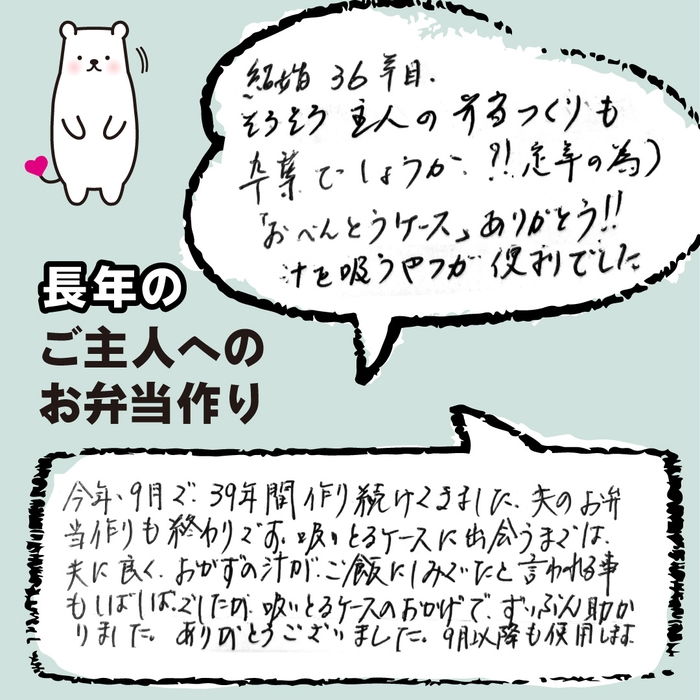 結婚 36年目.
そろそろ 主人の 弁当つくりも
卒業でしょうか. ?! 定年の為)
「おべんとうケース」ありがとう!!
汁を吸うやつが 便利でした
長年の
ご主人への
お弁当作り
今年、9月で、39年間作り続けてきました、夫のお弁
当作りも終わりです。吸いとるケースに出会うまでは、
夫に良く、おかずの汁が、ご飯にしみでたと言われる事
もしばしば。でしたが、吸いとるケースのおかげで、ずいぶん助か
りました。ありがとうございました。9月以降も使用します